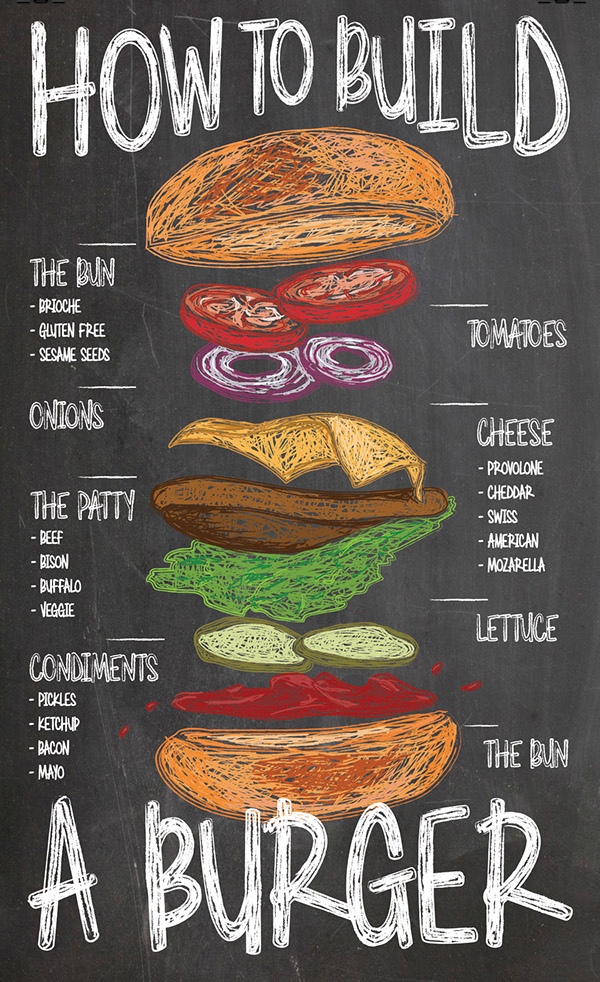 HOW TO BUILD
THE BUN
- BRIOCHE
- GLUTEN FREE
- SESAME SEEDS
TOMATOES
ONIONS
CHEESE
- PROVOLONE
- CHEDDAR
- SWISS
- AMERICAN
- MOZARELLA
THE PATTY
- BEEF
- BISON
- BUFFALO
- VEGGIE
LETTUCE
CONDIMENTS
- PICKLES
- KETCHUP
- BACON
- MAYO
THE BUN
A BURGER